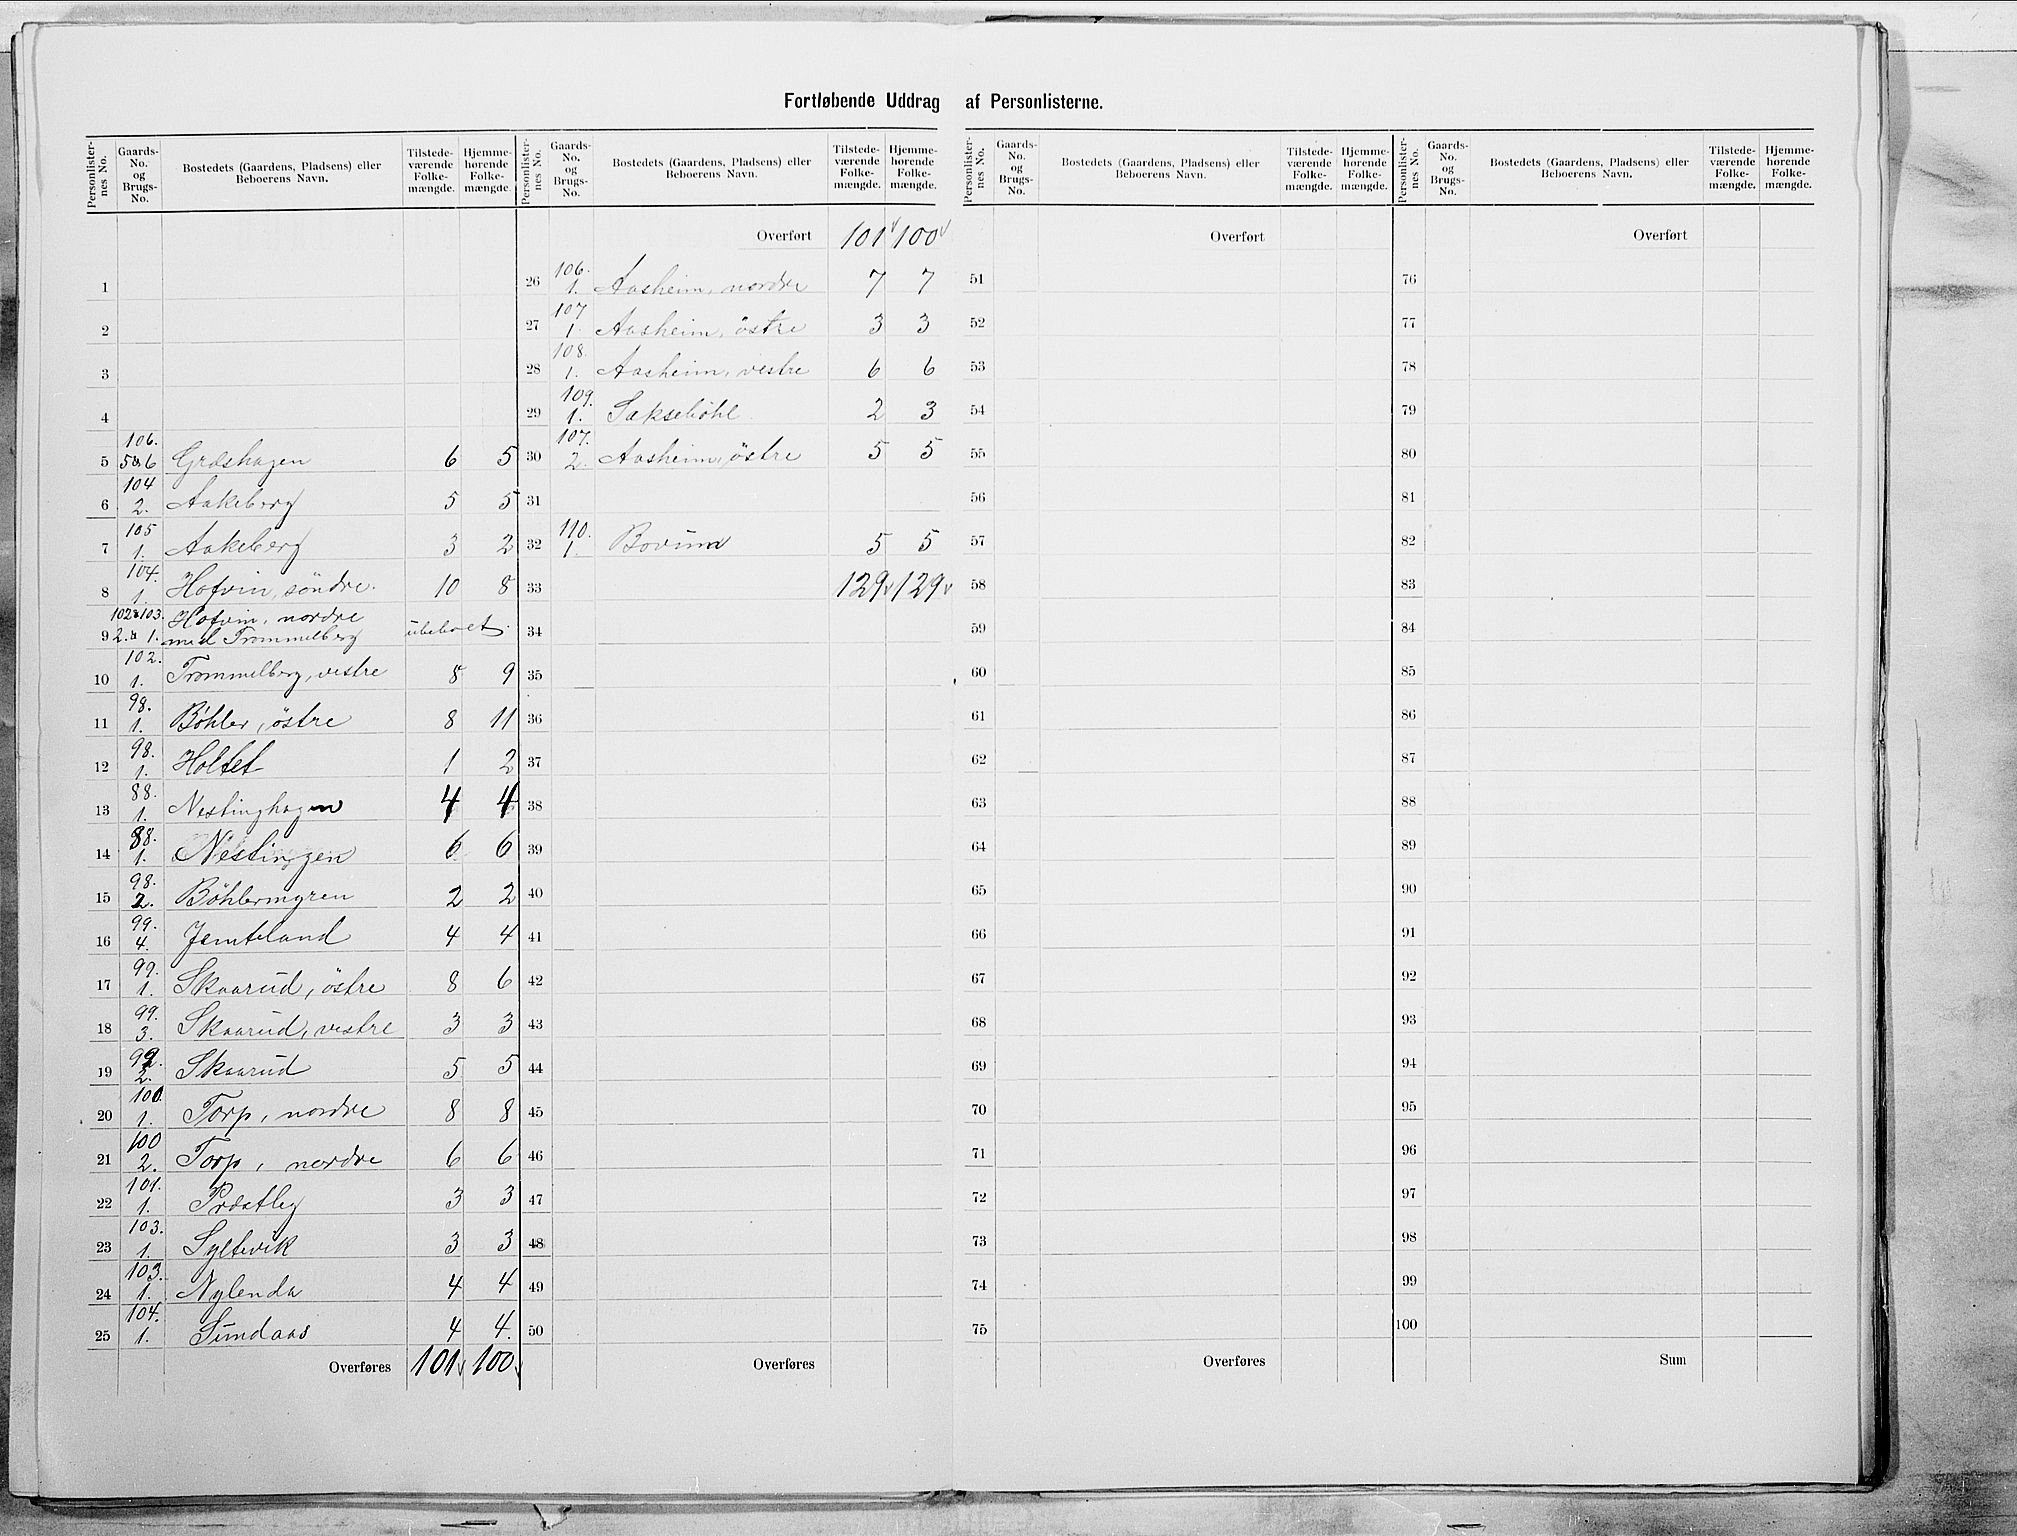 Fortløbende Uddrag af Personlisterne.
Personlister-nes No. Gaards-No. og Brugs-No. Bostedets (Gaardens, Pladsens) eller Beboerens Navn. Tilstede-værende Folke-mængde. Hjemme-hørende Folke-mængde.
1
2
3
4
5 106. 5&6 Græshagen 6 5
6 104 2. Aakeberg 5 5
7 105 1. Aakeberg 3 2
8 104. 1. Hofvin, söndre. 10 8
9 102&103. 2. & 1. Hofvin, nordre med Trommelberg ubeboet.
10 102. 1. Trommelberg, vestre 8 9
11 98. 1. Bøhler, östre 8 11
12 98. 1. Holtet 1 2
13 88. 1. Nestinghagen 4 4
14 88. 1. Nestingen 6 6
15 98. 2. Bøhlermyren 2 2
16 99. 4. Jemteland 4 4
17 99. 1. Skaarud, östre 8 6
18 99. 3. Skaarud, vestre 3 3
19 99. 2. Skaarud 5 5
20 100. 1. Torp, nordre 8 8
21 100 2. Torp, nordre 6 6
22 101. 1. Præstley 3 3
23 103. 1. Syltevik 3 3
24 103. 1. Nylenda 4 4
25 104. 1. Sundaas 4 4.
Overføres 101 100
Personlister-nes No. Gaards-No. og Brugs-No. Bostedets (Gaardens, Pladsens) eller Beboerens Navn. Tilstede-værende Folke-mængde. Hjemme-hørende Folke-mængde.
Overført 101 100
26 106. 1. Aasheim, nordre 7 7
27 107 1. Aasheim, östre 3 3
28 108. 1. Aasheim, vestre 6 6
29 109. 1. Saksebøhl. 2 3
30 107. 2. Aasheim, östre 5 5
31
32 110. 1. Bovum 5 5
33 129 129
34
35
36
37
38
39
40
41
42
43
44
45
46
47
48
49
50
Overføres
Personlister-nes No. Gaards-No. og Brugs-No. Bostedets (Gaardens, Pladsens) eller Beboerens Navn. Tilstede-værende Folke-mængde. Hjemme-hørende Folke-mængde.
Overført
51
52
53
54
55
56
57
58
59
60
61
62
63
64
65
66
67
68
69
70
71
72
73
74
75
Overføres
Personlister-nes No. Gaards-No. og Brugs-No. Bostedets (Gaardens, Pladsens) eller Beboerens Navn. Tilstede-værende Folke-mængde. Hjemme-hørende Folke-mængde.
Overført
76
77
78
79
80
81
82
83
84
85
86
87
88
89
90
91
92
93
94
95
96
97
98
99
100
Sum